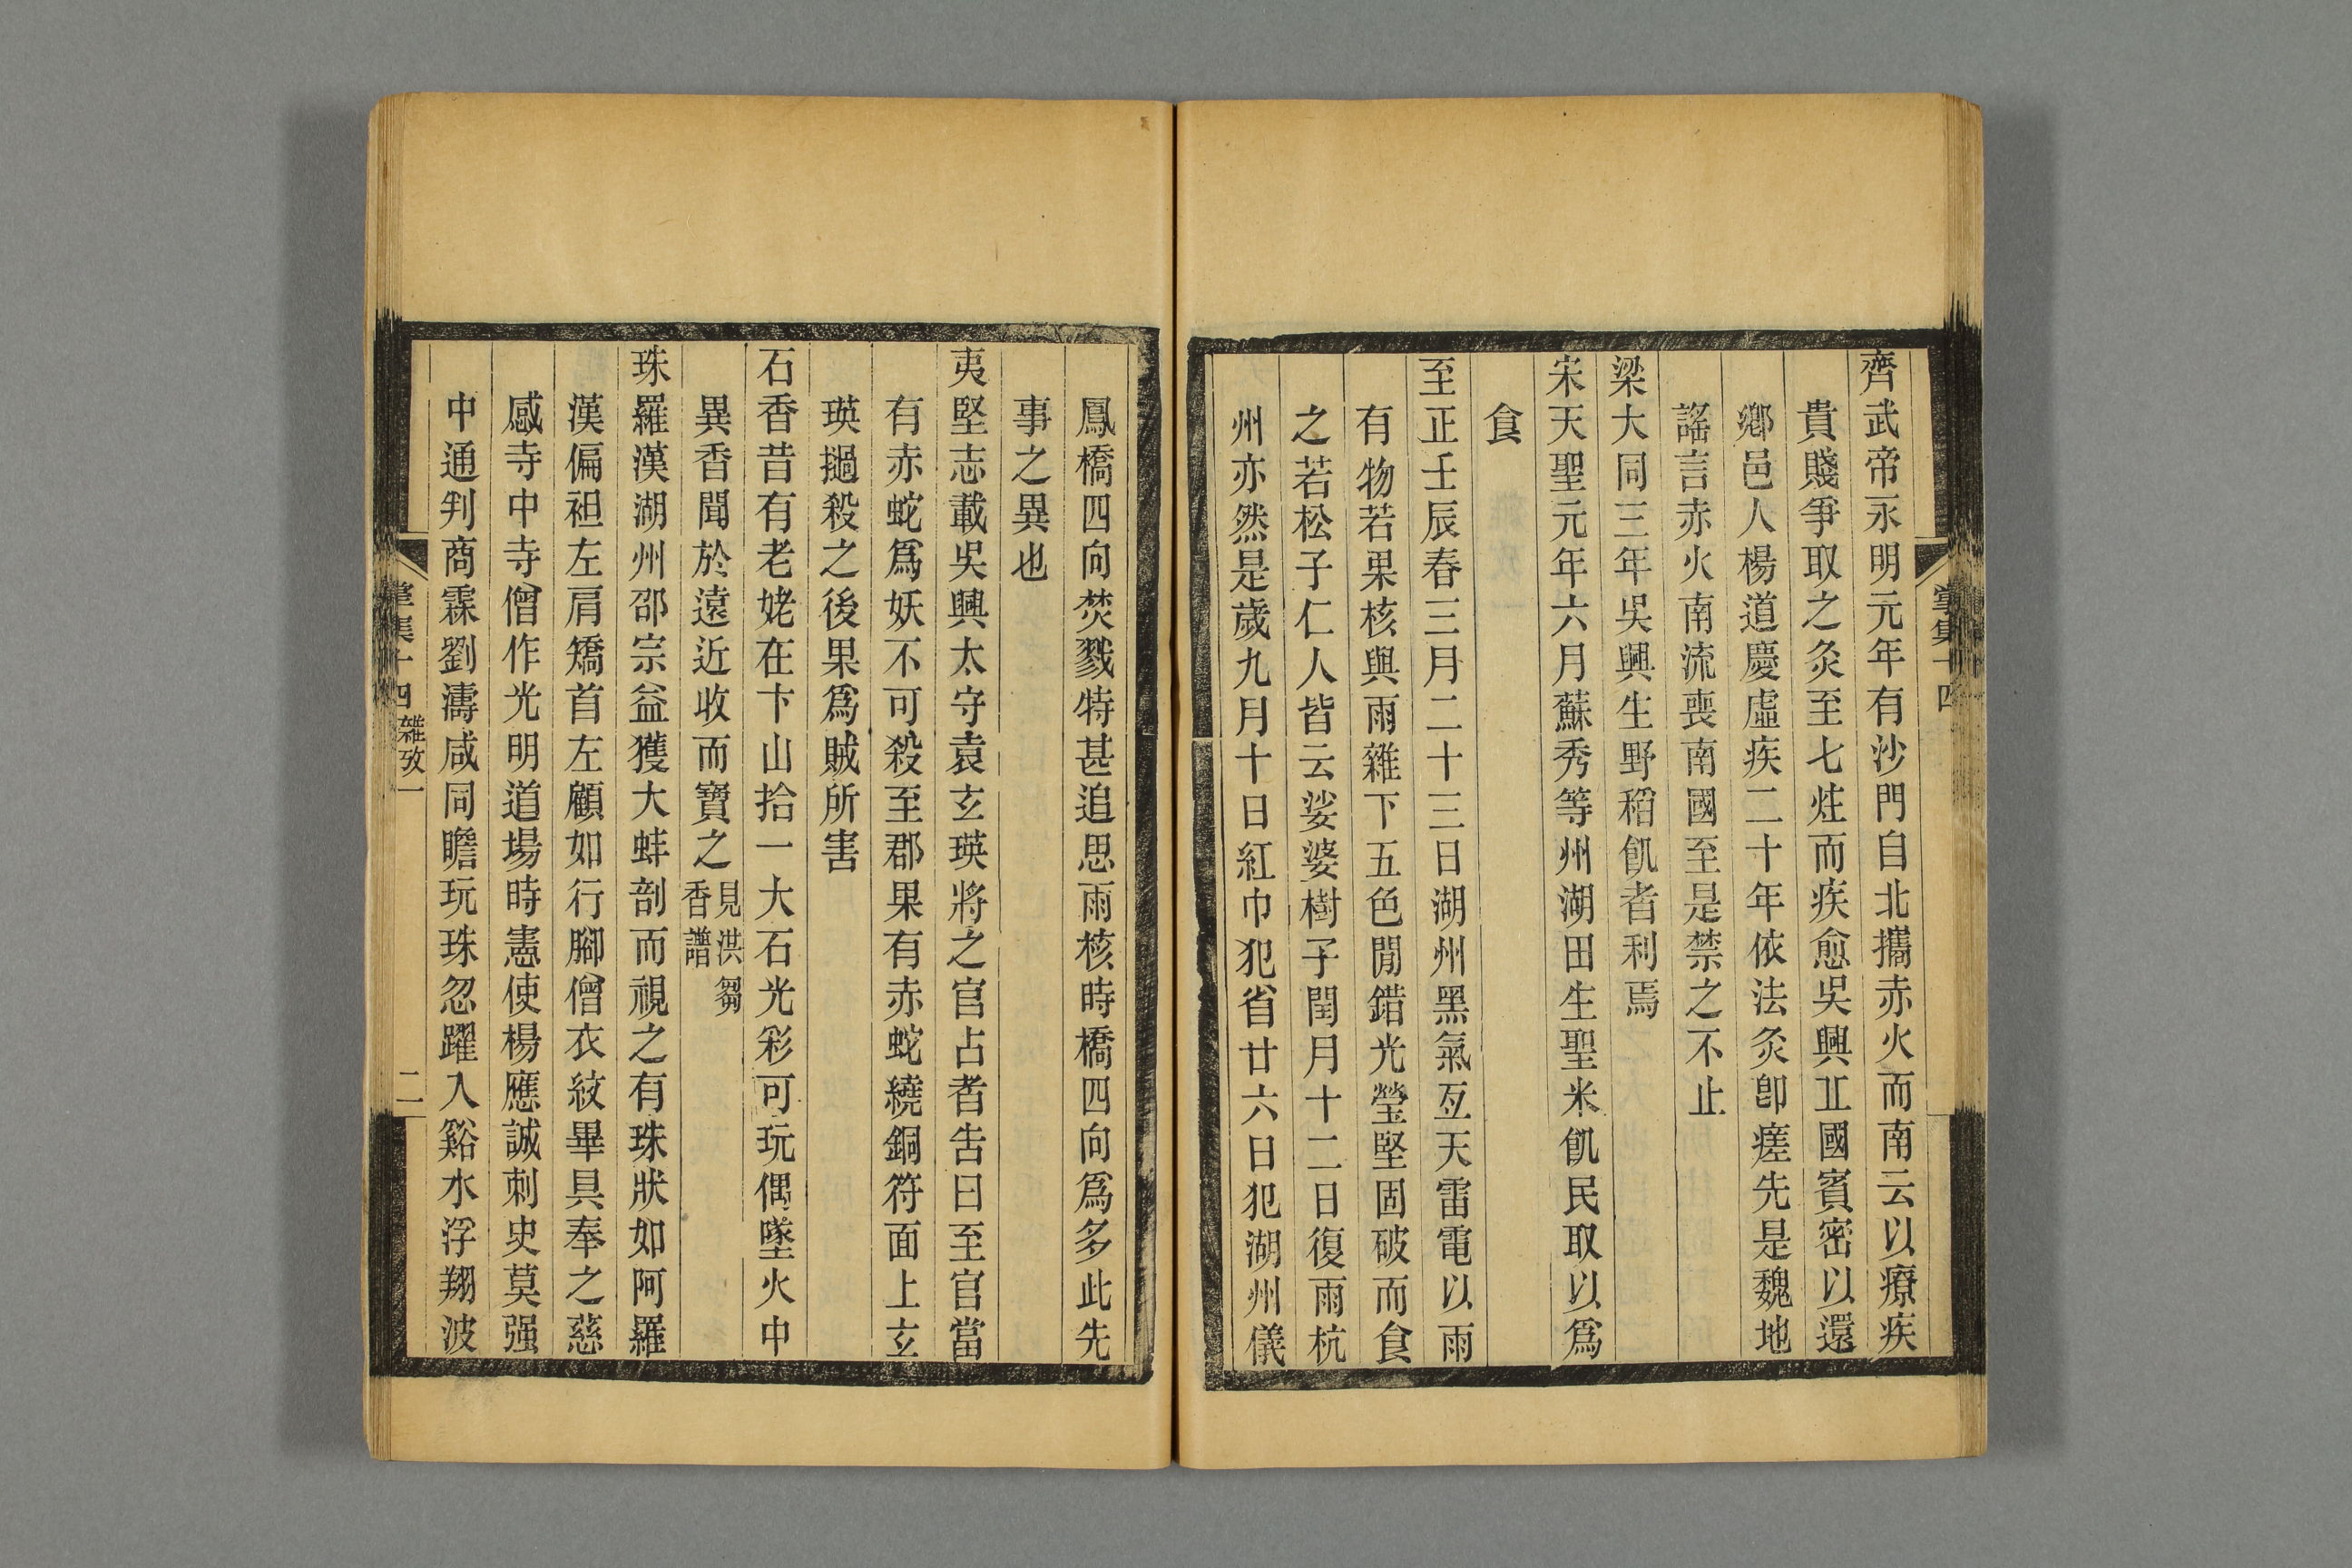 齊武帝永明元年有沙門自北攜赤火而南云以療疾
貴賤爭取之灸至七炷而疾愈吳興𠀉國賓密以還
鄉邑人楊道慶虛疾二十年依法灸卽瘥先是魏地
謠言赤火南流喪南國至是禁之不止
梁大同三年吳興生野稻飢者利焉
宋天聖元年六月蘇秀等州湖田生聖米飢民取以爲
食
至正壬辰春三月二十三日湖州黑氣亙天雷電以雨
有物若果核與雨雜下五色間錯光瑩堅固破而食
之若松子仁人皆云娑婆樹子閏月十二日復雨杭
州亦然是歲九月十日紅巾犯省廿六日犯湖州儀
掌集十四
鳳橋四向焚戮特甚追思雨核時橋四向爲多此先
事之異也
夷堅志載吳興太守袁玄瑛將之官占者吿曰至官當
有赤蛇爲妖不可殺至郡果有赤蛇繞銅符面上玄
瑛撾殺之後果爲賊所害
石香昔有老姥在卞山拾一大石光彩可玩偶墜火中
異香聞於遠近收而寶之見洪芻香譜
珠羅漢湖州邵宗益獲大蚌剖而視之有珠狀如阿羅
漢偏袒左肩矯首左顧如行腳僧衣紋畢具奉之慈
感寺中寺僧作光明道場時憲使楊應誠刺史莫强
中通判商霖劉濤咸同瞻玩珠忽躍入谿水浮翔波
掌集十四 雜攷一 二